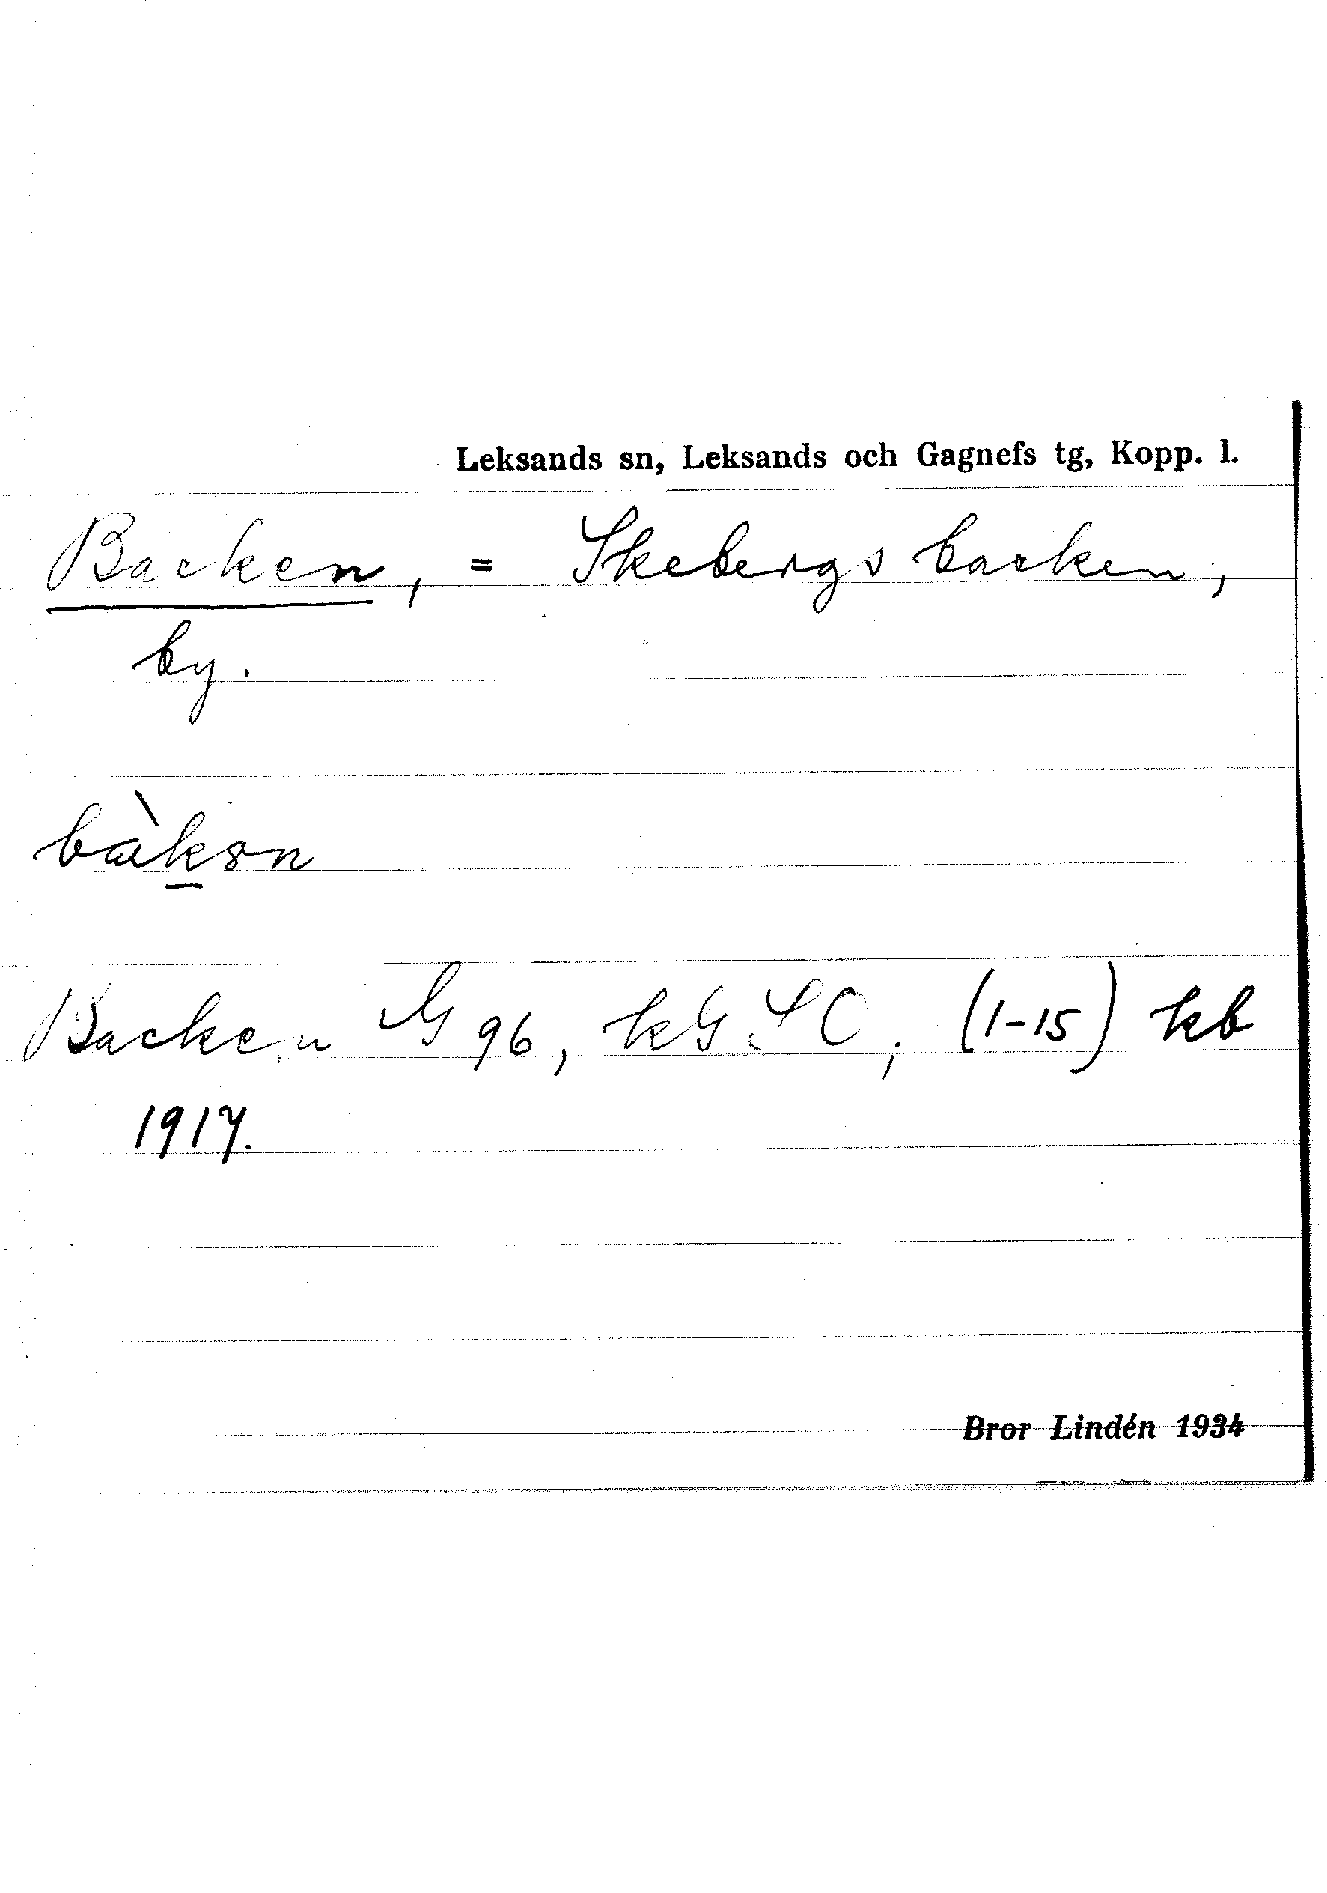 Leksands sn, Leksands och Gagnefs tg, Kopp. l.
Backen, = Skebergsbacken,
by.
Backen G 96, kG SO; (1-15) kb
1917.
Bror Lindén 1934